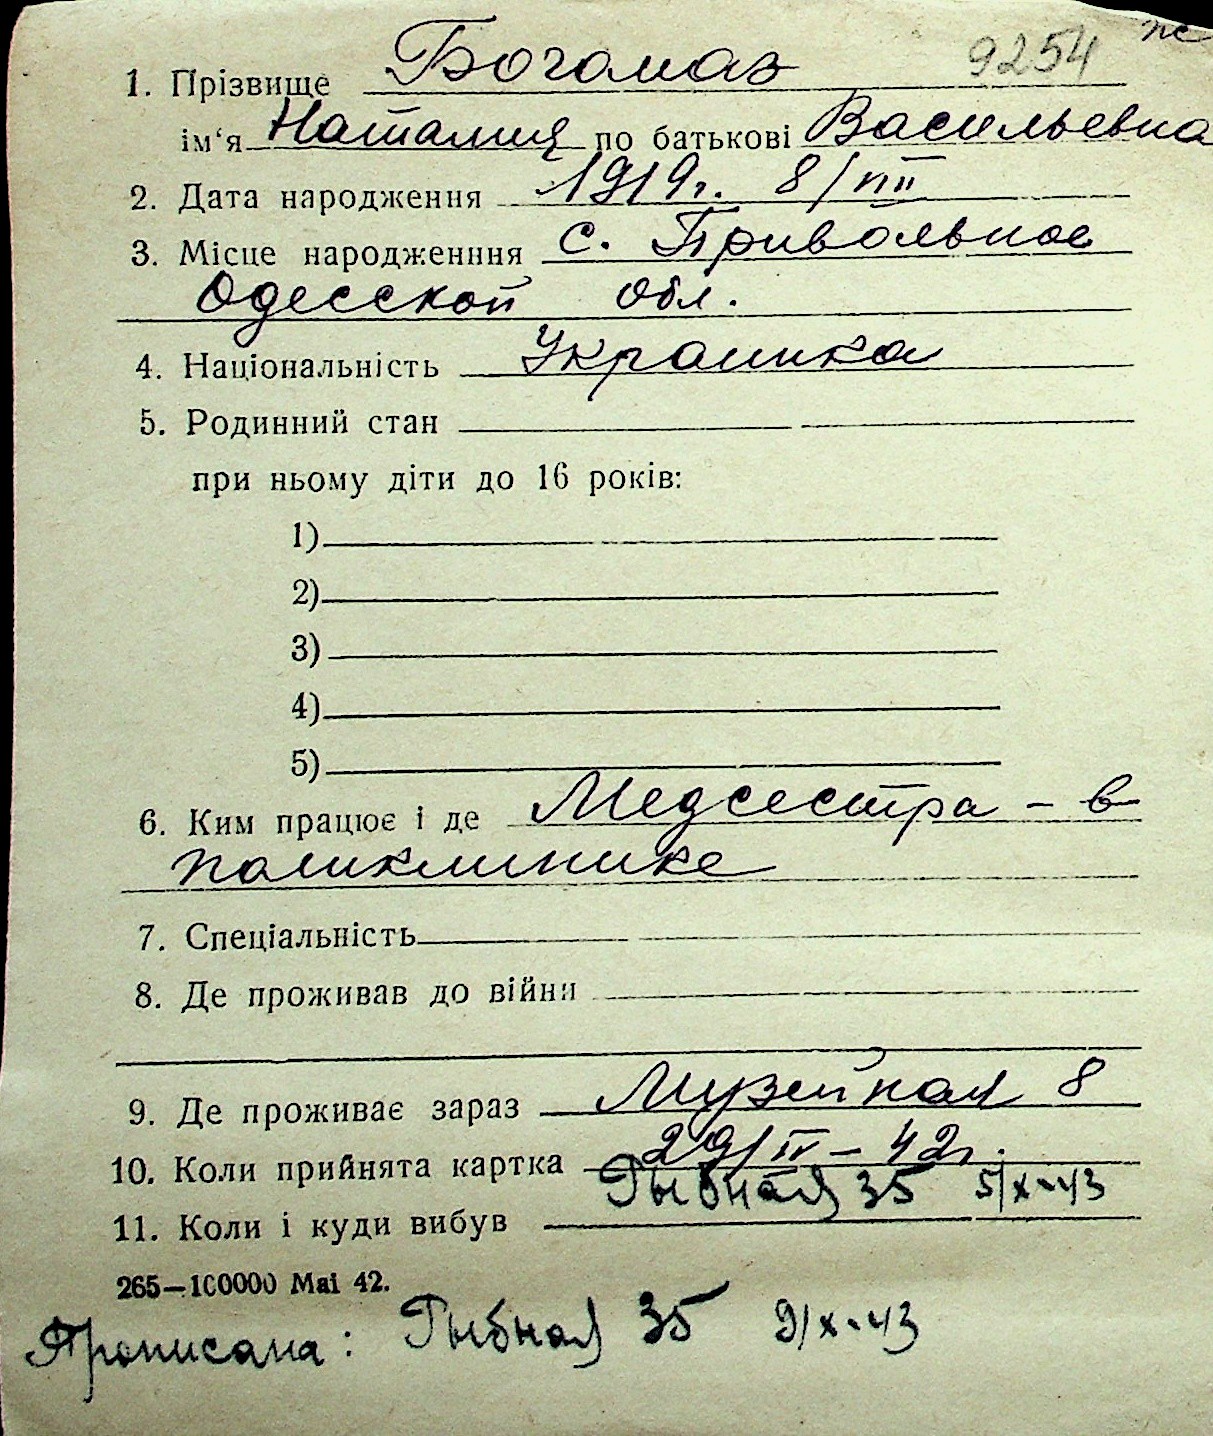 9254 ж
1. Прізвище Богомаз
ім'я Наталия по батькові Васильевна
2. Дата народження 1919г. 8/VIII
3. Місце народженння с. Привольное
Одесской обл.
4. Національність Украинка
5. Родинний стан
при ньому діти до 16 років:
1)
2)
3)
4)
5)
6. Ким працює і де Медсестра - в
поликлинике
7. Спеціальність
8. Де проживав до війни
9. Де проживає зараз Музейная 8
10. Коли прийнята картка 29/IV - 42г.
Рыбная 35 5/X-43
11. Коли і куди вибув
265—100000 Mai 42.
Прописана: Рыбная 35 9/X-43